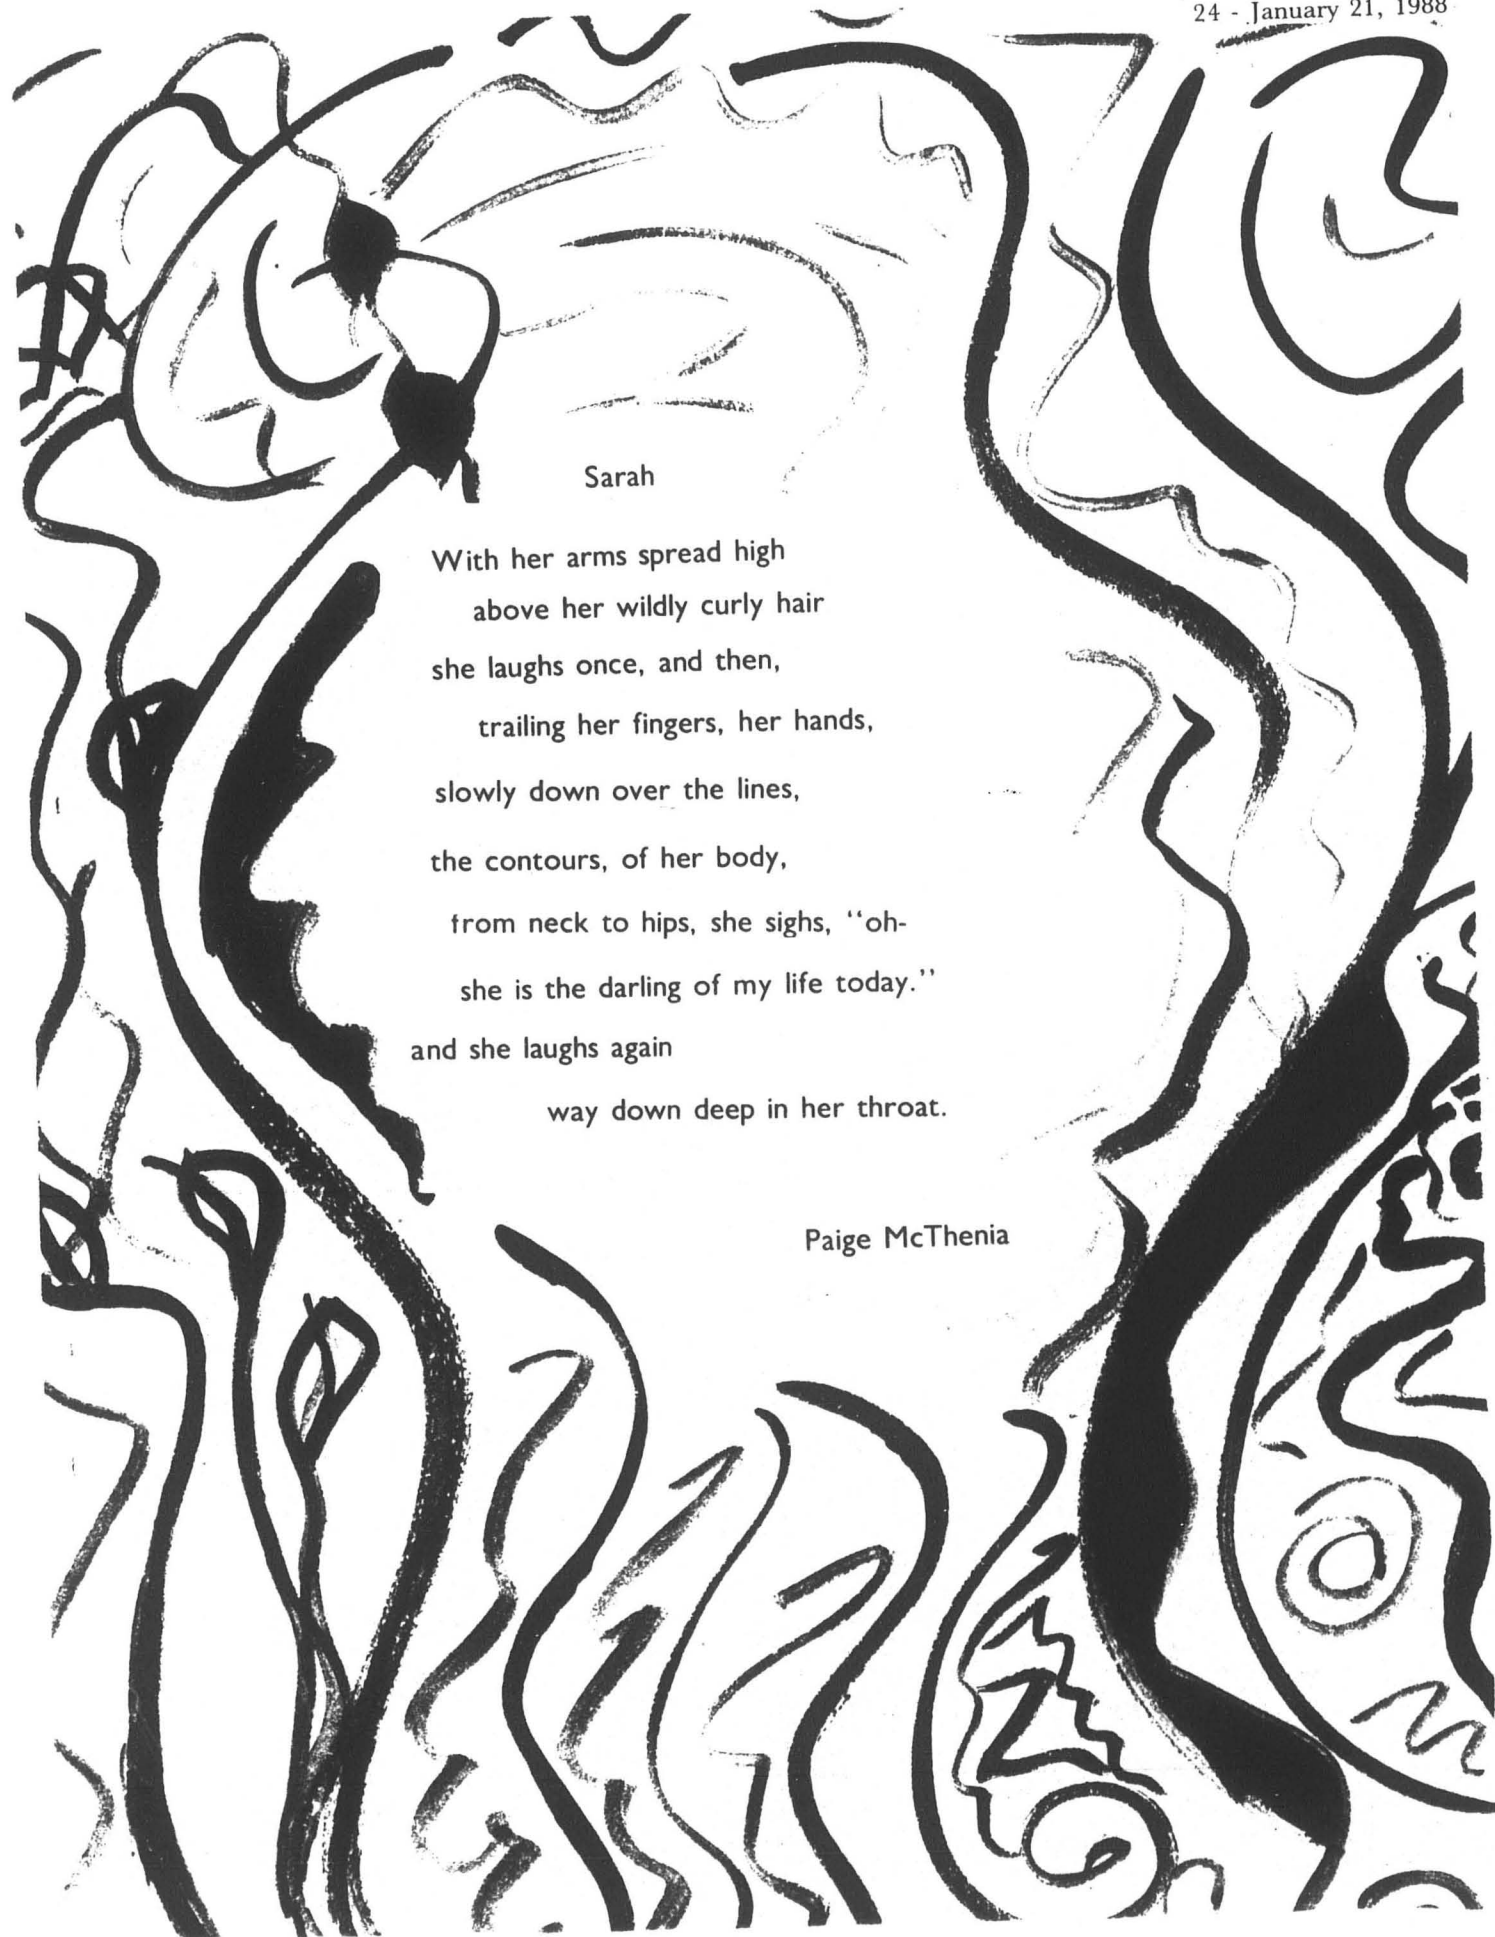 24 - January 21, 1988
Sarah
With her arms spread high
above her wildly curly hair
she laughs once, and then,
trailing her fingers, her hands,
slowly down over the lines,
the contours, of her body,
from neck to hips, she sighs, “oh-
she is the darling of my life today.”
and she laughs again
way down deep in her throat.
Paige McThenia